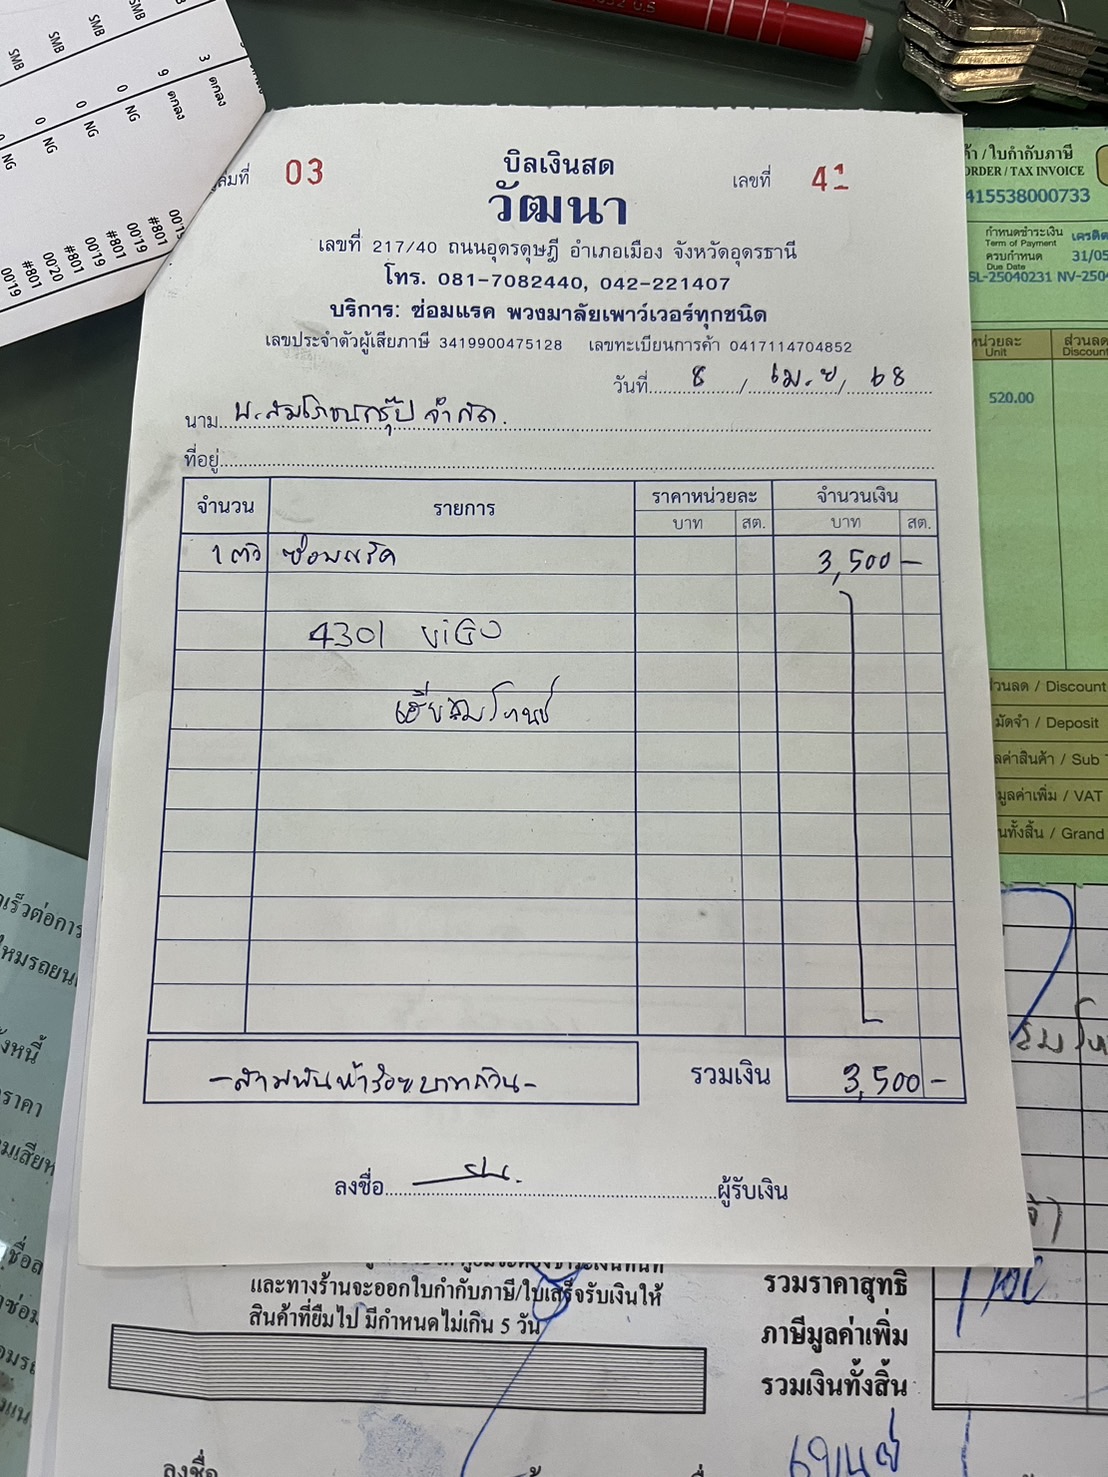 SMB
SMB
SMB
3 ตกลง
9 ตกลง
0 NG
0 NG
0 NG
NG
0019
#801
0019
#801
0019
#801
0020
#801
0019
เล่มที่ 03
บิลเงินสด
เลขที่ 41
วัฒนา
เลขที่ 217/40 ถนนอุดรดุษฎี อำเภอเมือง จังหวัดอุดรธานี
โทร. 081-7082440, 042-221407
บริการ: ซ่อมแรค พวงมาลัยเพาว์เวอร์ทุกชนิด
เลขประจำตัวผู้เสียภาษี 3419900475128 เลขทะเบียนการค้า 0417114704852
วันที่ 8 / เม.ย / 68
นาม บ.สมโภชน์กรุ๊ป จำกัด.
ที่อยู่
จำนวน รายการ ราคาหน่วยละ จำนวนเงิน
บาท สต. บาท สต.
1 ตัว ซ่อมแร็ค 3,500 –
4301 ViGO
เฮีย
รวมเงิน 3,500 –
-สามพันห้าร้อยบาทถ้วน-
ลงชื่อ ผู้รับเงิน
ค้า / ใบกำกับภาษี
ORDER / TAX INVOICE
415538000733
กำหนดชำระเงิน เครดิต
Term of Payment
ครบกำหนด 31/05
Due Date
SL-25040231 NV-2504
หน่วยละ ส่วนลด
Unit Discount
520.00
ส่วนลด / Discount
มัดจำ / Deposit
ลค่าสินค้า / Sub
มูลค่าเพิ่ม / VAT
นทั้งสิ้น / Grand
และทางร้านจะออกใบกำกับภาษี/ใบเสร็จรับเงินให้
สินค้าที่ยืมไป มีกำหนดไม่เกิน 5 วัน
รวมราคาสุทธิ
ภาษีมูลค่าเพิ่ม
รวมเงินทั้งสิ้น
ลงชื่อ